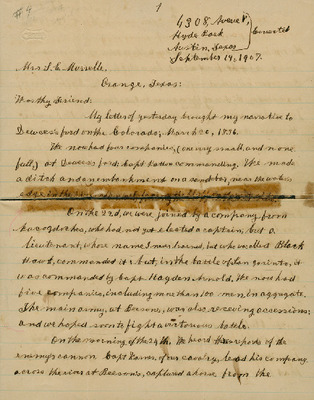 #4
1
4308, Avenue F,
Hyde Park
Austin, Texas
Corrected
September 14, 1907.
Mrs. L. E. Murrelle.
Orange, Texas:
Worthy Friend:
My letter of yesterday brought my narrative to
Dewees's ford on the Colorado, March 20, 1836.
We now had four companies, (one very small, and none
full,) at Dewees's ford: Capt. Baker commanding. We made
a ditch and an embankment on a sand bar, near the water's
edge
On the 22d, we were joined by a company from
Nacogdoches, who had not yet elected a captain, but a
lieutenant, whose name I never learned, but who was called Black
Hawk, commanded it: but, in the battle of San Jacinto, it
was commanded by Capt. Hayden Arnold. We now had
five companies, including more than 100 men, in aggregate.
The main army, at Beason's, was also receiving accessions:
and we hoped soon to fight a victorious battle.
On the morning of the 24th. We heard three reports of the
enemy's cannon. Capt. Karnes, of our cavalry, led his company
across the river at Beeson's, captured a horse from the